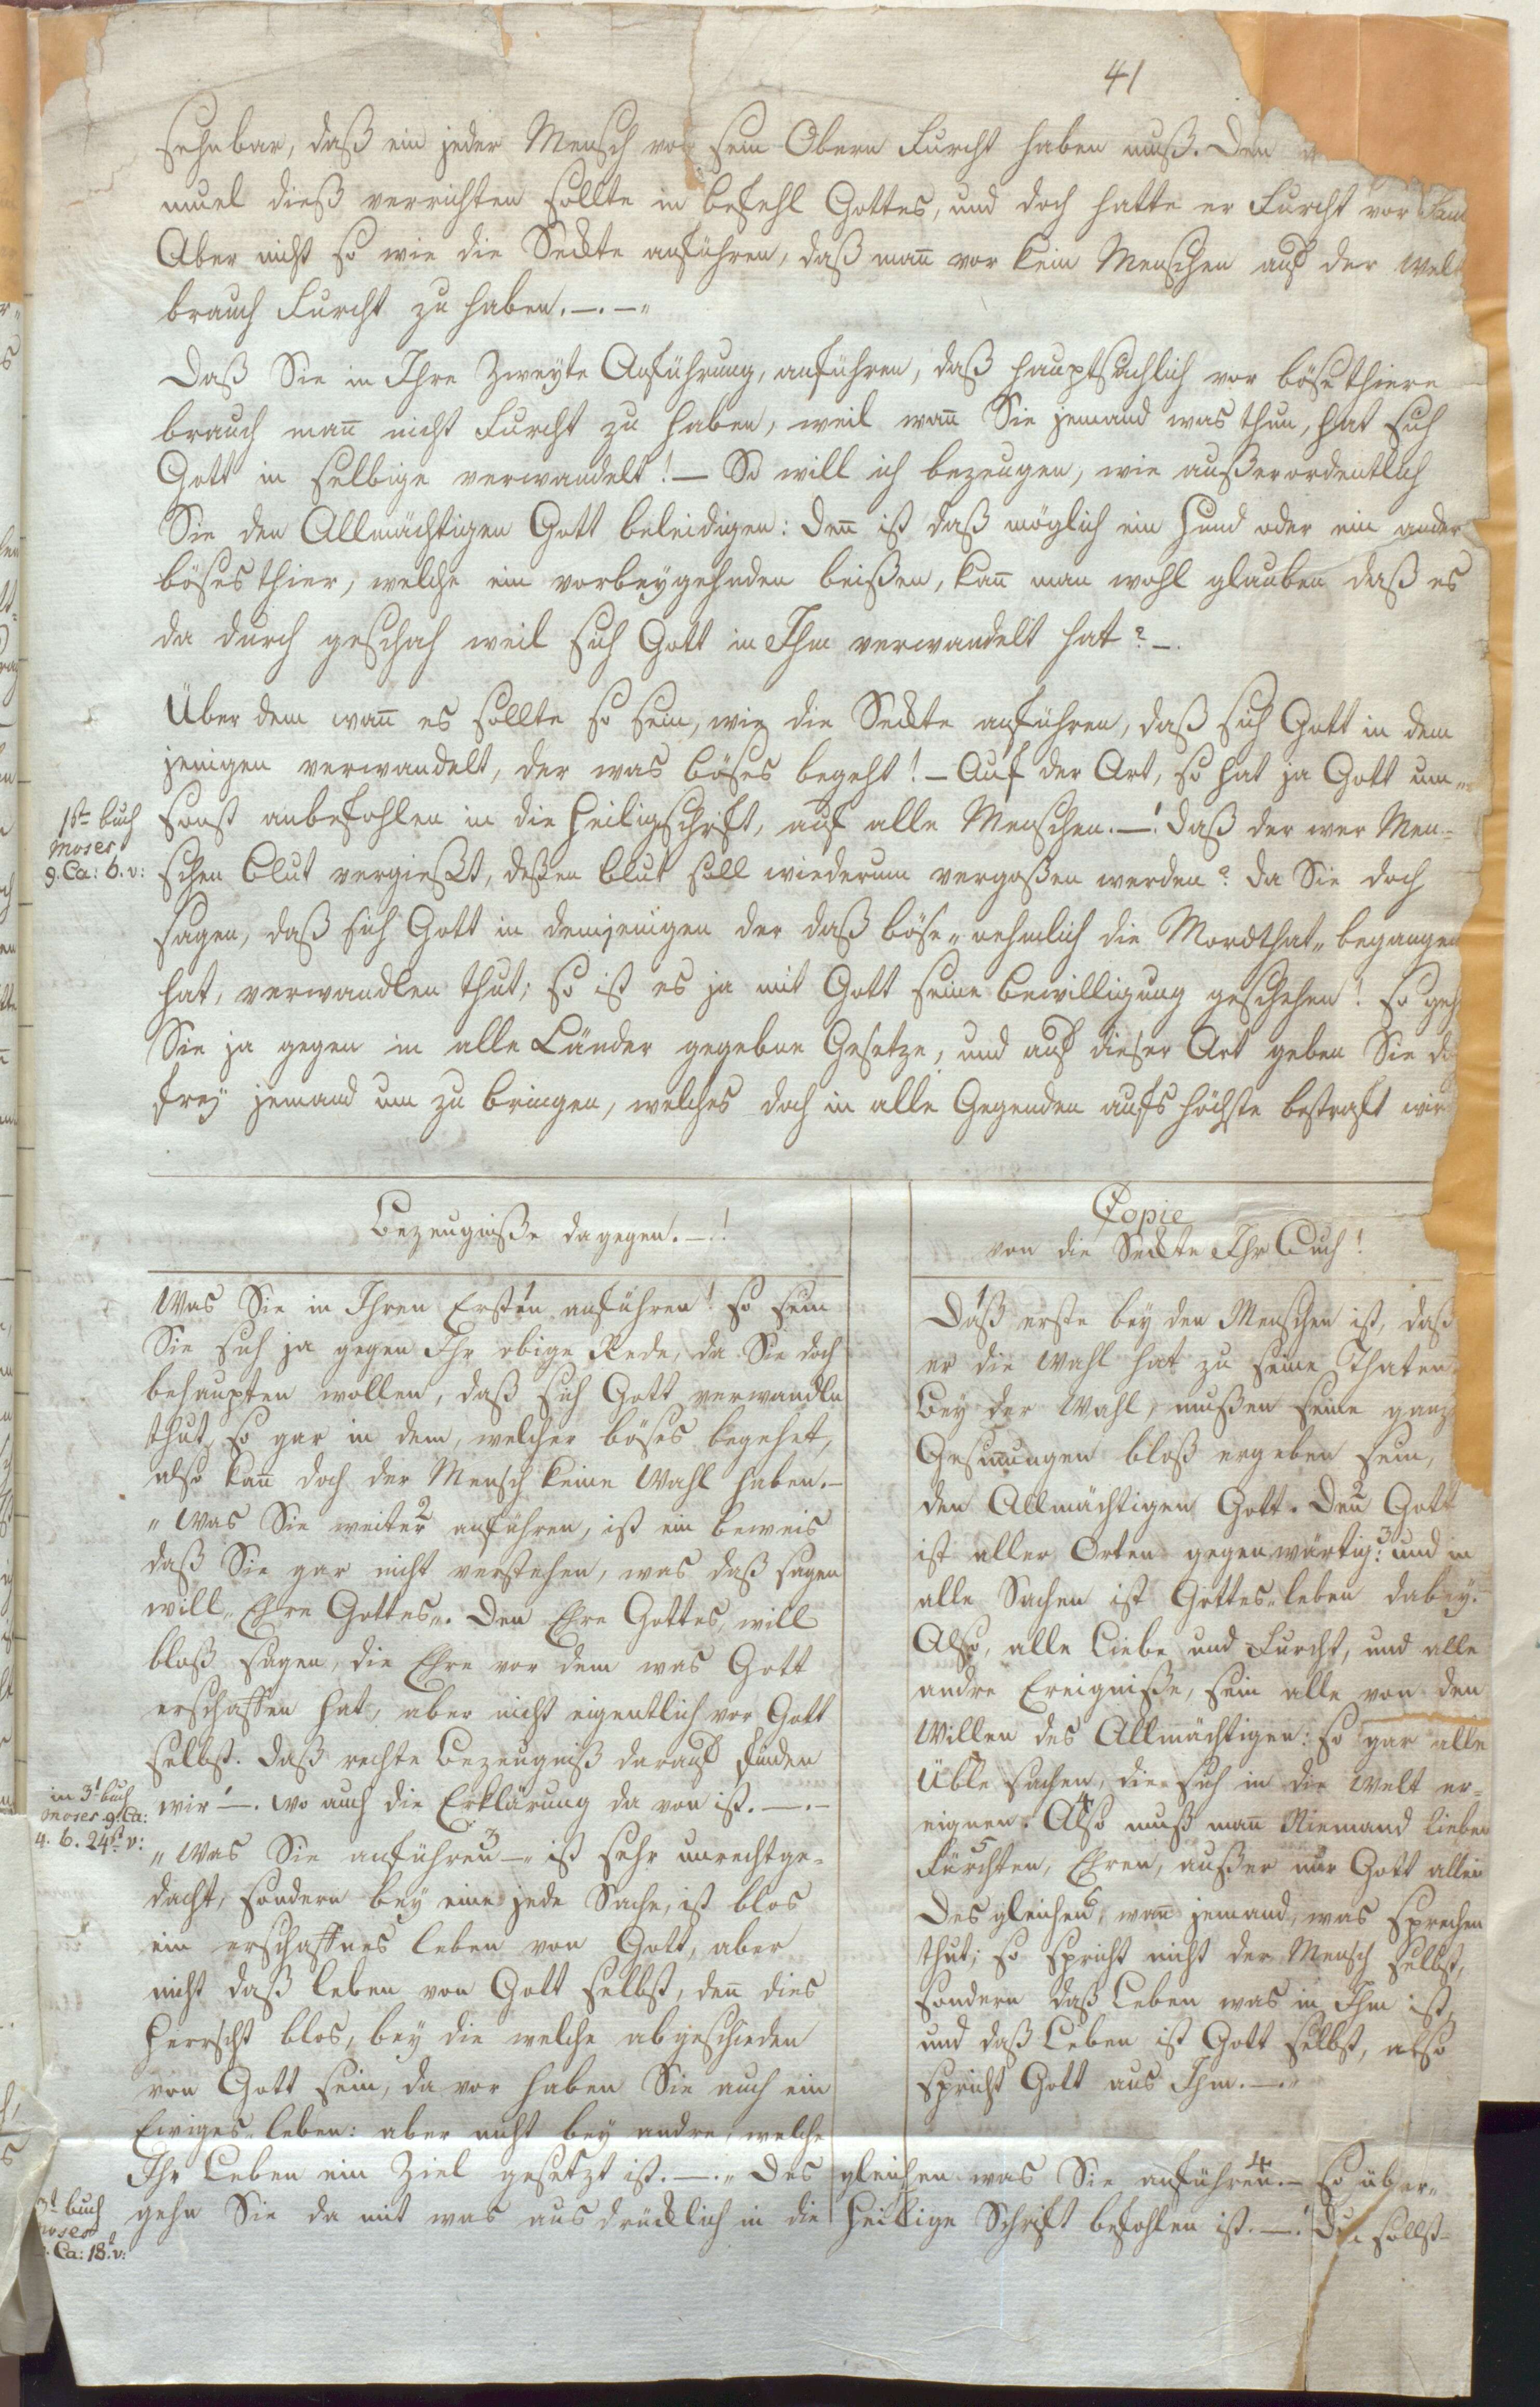 41
sehnbar, daß ein jeder Mensch vor sein Obern Furcht haben muß. Den
muel dieß verrichten sollte in befehl Gottes, und doch hatte er Furcht vor
Aber nicht so wie die Seckte anführen, daß man̄ vor kein Menschen auf der Welt
brauch Furcht zu haben.—.—„
Daß Sie in Ihre Zweyte Anführung, anführen, daß hauptsächlich vor böse thiere
brauch man̄ nicht Furcht zu haben, weil wan̄ Sie jemand was thun, hat sich
Gott in selbige verwandelt!— So will ich bezeugen, wie außerordentlich
Sie den Allmächtigen Gott beleidigen: Den̄ ist daß möglich ein Hund oder ein ander
böses thier, welche ein vorbeygehnden beißen, kan̄ man wohl glauben daß es
da durch geschah weil sich Gott in Ihm verwandelt hat?—.
Über dem wan̄ es sollte so sein, wie die Seckte anführen, daß sich Gott in dem
jenigen verwandelt, der was böses begeht!— Auf der Art, so hat ja Gott um„
1ste buch
Moses
9. Ca: 6. v:
sonst anbefohlen in die Heiligschrift, auf alle Menschen.—! daß der wer Men„
schen blut vergießt, deßen blut soll wiederum vergoßen werden? Da Sie doch
sagen, daß sich Gott in demjenigen der daß böse„ nehmlich die Mordthat„ begangen
hat, verwandlen thut; so ist es ja mit Gott seine bewilligung geschehen! so geh
Sie ja gegen in alle Länder gegebne Gesetze, und auf dieser Art geben Sie
frey jemand um zu bringen, welches doch in alle Gegenden aufs höchste bestraft wir
Bezeugniße dagegen.—!
Was Sie in Ihren Ersten 1 anführen! so sein
Sie sich ja gegen Ihr obige Rede, da Sie doch
behaupten wollen, daß sich Gott verwandln
thut, so gar in dem, welcher böses begehet,
also kan̄ doch der Mensch keine Wahl haben.—
„Was Sie weiter 2 anführen, ist ein beweis
daß Sie gar nicht verstehen, was daß sagen
will„ Ehre Gottes„. Den Ehre Gottes, will
bloß sagen, die Ehre vor dem was Gott
erschaffen hat, aber nicht eigentlich vor Gott
selbst. Daß rechte Bezeugniß darauf finden
in 3t buch
Moses 9. Ca:
4. 6. 24st v:
wir!—. wo auch die Erklärung da von ist.—.—
„Was Sie anführen 3 —„ ist sehr unrechtge„
dacht, sondern bey eine jede Sache, ist blos
ein erschaffnes leben von Gott, aber
nicht daß leben von Gott selbst, den̄ dies
herrscht blos, bey die welche abgeschieden
von Gott sein, da vor haben Sie auch ein
Ewiges„ leben: aber nicht bey andre, welche
Copie
von die Seckte Ihr Buch!
1 Daß erste bey den Menschen ist, daß
er die Wahl hat zu seine Thaten
Bey der Wahl, mußen seine ganz
Gesin̄ungen bloß ergeben sein,
den Allmächtigen Gott. Den̄ 2 Gott
ist aller Orten gegenwärtig: 3 und in
alle Sachen ist Gottes„ leben dabey.
Also, alle Liebe und Furcht, und alle
andre Ereigniße, sein alle von den
Willen des Allmächtigen: so gar alle
Üble sachen, die sich in die Welt er„
eignen. 4 Also muß man̄ Niemand lieben
5 Fürchten, Ehren, außer nur Gott allein
Des gleichen 6, wan̄ jemand, was sprechen
thut; so spricht nicht der Mensch selbst,
sondern daß Leben was in Ihm ist,
und daß Leben ist Gott selbst, also
spricht Gott aus Ihm.—.„
Ihr Leben ein Ziel gesetzt ist.—.„ Des gleichen was Sie anführen 4.— so über„
3t buch
Moses
Ca: 18. v:
gehn Sie da mit was ausdrücklich in die Heilige Schrift befohlen ist.—! Du sollst„